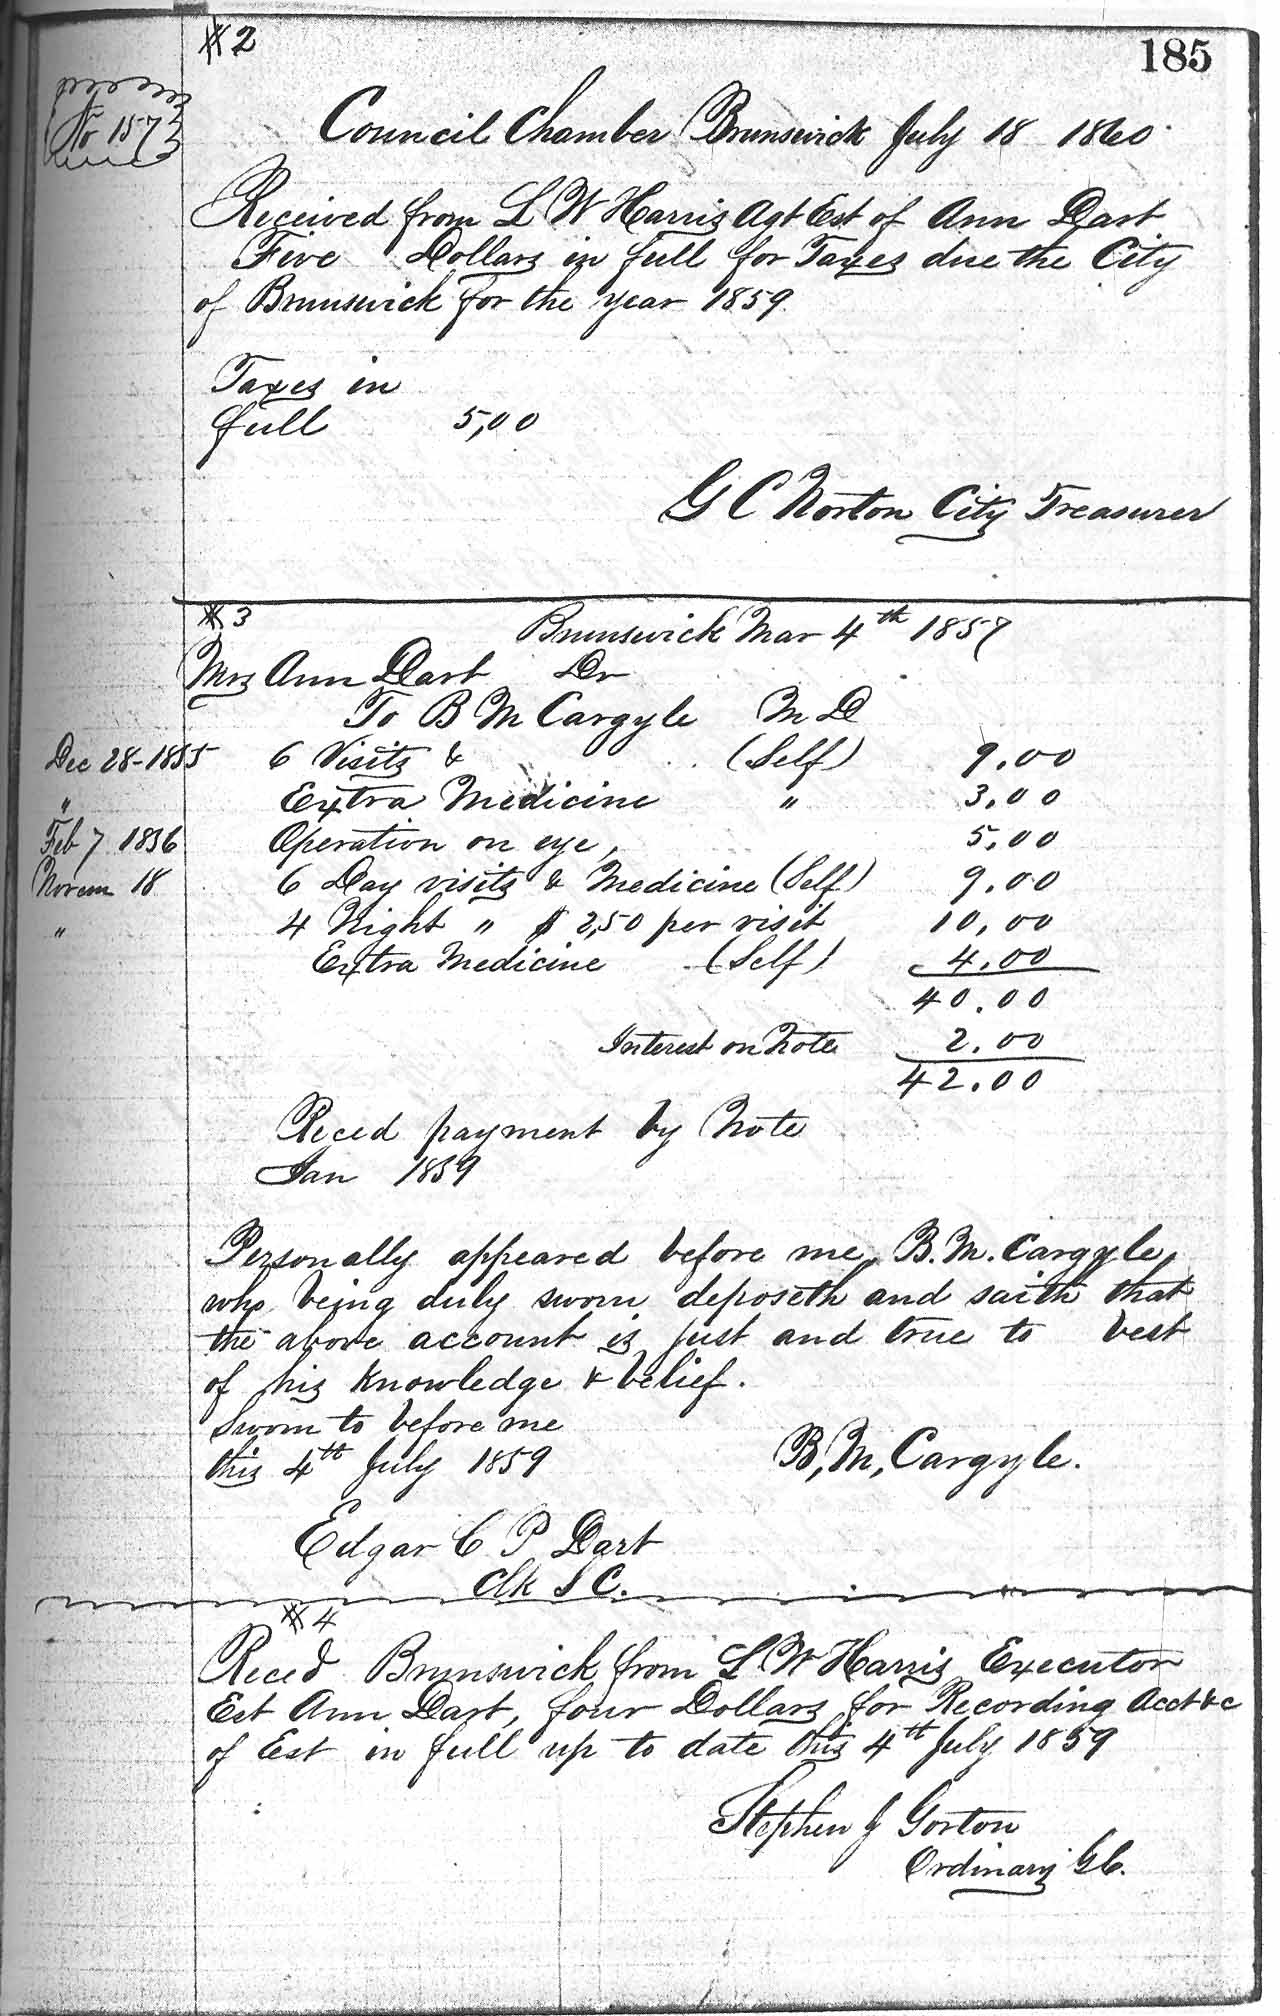 #2
185
No 157
Council Chamber Brunswick July 18 1860
Received from L W Harris Agt Est of Ann Dart
Five Dollars in full for Taxes due the City
of Brunswick for the year 1859.
Taxes in
full 5,00
G C Norton City Treasurer
#3
Brunswick Mar 4th 1857
Mrs Ann Dart Dr
To B M Cargyle M D
Dec 28-1855 6 Visits & (Self) 9.00
" Extra Medicine " 3.00
Feb 7 1856 Operation on eye, 5.00
Novem 18 6 Day visits & Medicine (Self) 9.00
" 4 Night " $2,50 per visit 10,00
Extra Medicine (Self) 4.00
40.00
Interest on Note 2.00
42.00
Reced payment by Note
Jan 1859
Personally appeared before me, B.M. Cargyle,
who being duly sworn deposeth and saith that
the above account is just and true to best
of his knowledge & belief.
Sworn to before me
this 4th July 1859
B, M, Cargyle.
Edgar C P Dart
Clk S C.
#4
Reced Brunswick from L W Harris Executor
Est Ann Dart, four Dollars for Recording Acct &c
of Est in full up to date this 4th July 1859
Stephen J Gorton
Ordinary G C.